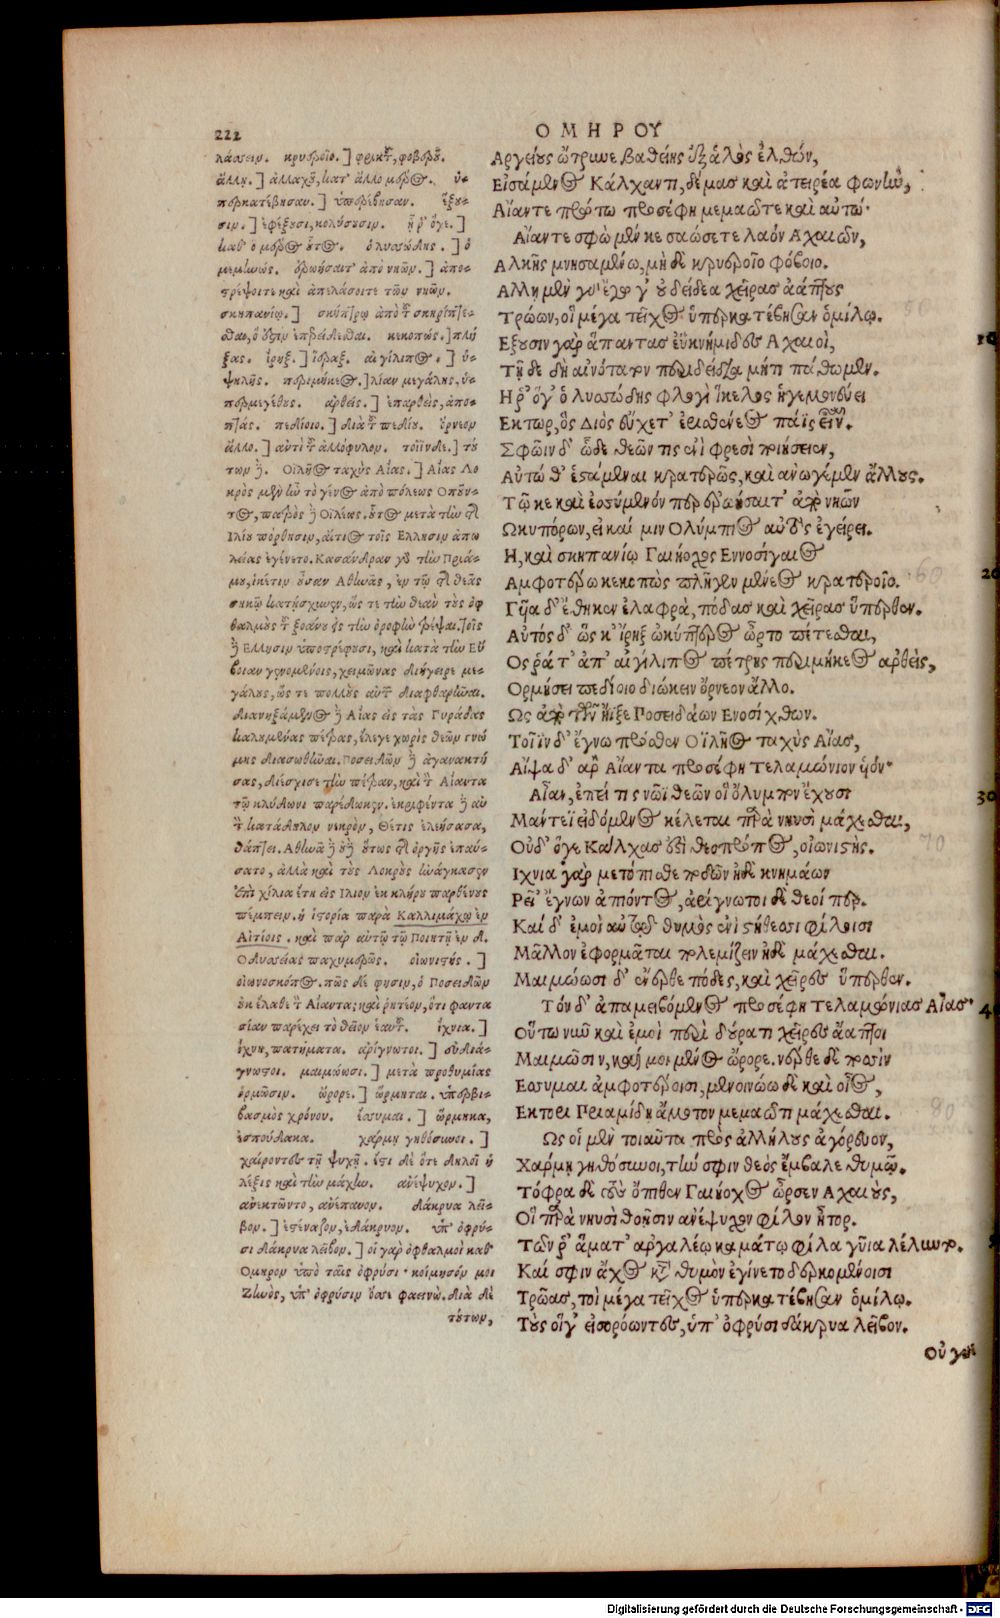 222
ΟΜΗΡΟΥ
λάσειρ. κρυεροῖο.] φρικτοῦ, φοβεροῦ.
ἄλλῃ.] ἀλλαχοῦ, κατ' ἄλλο μέρος. ὑ-
περκατέβησαν.] ὑπερέβησαν. ἕξου-
σιν.] ἐφέξουσι, κωλύσουσιν. ᾗ ῥ' ὅγε.]
καθ' ὃ μέρος οὗτος. ὁ λυσσώδης.] ὁ
μεμηνώς. ἐρωήσαιτ' ἀπὸ νηῶν.] ἀπο-
τρέψοιτε καὶ ἀπελάσοιτε τῶν νηῶν.
σκηπανίῳ.] σκήπτρῳ ἀπὸ τοῦ σκηρίπτε-
σθαι, ὅ ἐστιν ἐπερείδεσθαι. κεκοπώς.] πλή
ξας. ἴρηξ.] ἱέραξ. αἰγίλιπος.] ὑ-
ψηλῆς. περιμήκεος.] λίαν μεγάλης, ὑ-
περμεγέθους. ἀρθείς.] ἐπαρθείς, ἀπο-
πτάς. πεδίοιο.] διὰ τοῦ πεδίου. ὄρνεον
ἄλλο.] ἀντὶ τοῦ ἀλλόφυλον. τοῖϊν δε.] τού
των δὲ. Οἰλῆος ταχὺς Αἴας.] Αἴας Λο
κρὸς μὲν ἦν τὸ γένος ἀπὸ πόλεως Οποῦν-
τος, πατρὸς δὲ Οἰλέως. οὗτος μετὰ τὴν τοῦ
Ιλίου πόρθησιν, αἴτιος τοῖς Ελλησιν ἀπω
λείας ἐγένετο. Κασάνδραν γὰρ τὴν Πριά-
μου, ἱκέτιν οὖσαν Αθηνᾶς, ἐν τῷ τῆς θεᾶς
σηκῷ κατῄσχυνεν, ὥς τε τὴν θεὰν τοὺς ὀφ
θαλμοὺς τοῦ ξοάνου εἰς τὴν ὀροφὴν τρέψαι. τοῖς
δὲ Ελλησιν ὑποστρέφουσι, καὶ κατὰ τὴν Εὔ
βοιαν γενομένοις, χειμῶνας διήγειρε με-
γάλους, ὥς τε πολλοὺς αὐτῶν διαφθαρῆναι.
διανηξάμενος δὲ Αἴας εἰς τὰς Γυράδας
καλουμένας πέτρας, ἔλεγε χωρὶς θεῶν γνώ
μης διασωθῆναι. Ποσειδῶν δὲ ἀγανακτή
σας, διέσχισε τὴν πέτραν, καὶ τὸν Αἴαντα
τῷ κλύδωνι παρέδωκεν. ἐκριφέντα δὲ αὐ
τὸν κατὰ Δῆλον νεκρὸν, Θέτις ἐλεήσασα,
θάπτει. Αθηνᾶ δὲ οὐδὲ οὕτως τῆς ὀργῆς ἐπαύ-
σατο, ἀλλὰ καὶ τοὺς Λοκροὺς ἠνάγκασεν
ἐπὶ χίλια ἔτη εἰς Ιλιον ἐκ κλήρου παρθένους
πέμπειν. ἡ ἱστορία παρὰ Καλλιμάχῳ ἐν
Αἰτίοις. καὶ παρ' αὐτῷ τῷ Ποιητῇ ἐν δ.
Οδυσσείας παχυμερῶς. οἰωνιστής.]
οἰωνοσκόπος. πῶς δέ φησιν, ὁ Ποσειδῶν
οὐκ ἔλαθε τὸν Αἴαντα; καὶ ῥητέον, ὅτι φαντα
σίαν παρέχει τὸ θεῖον ἑαυτοῦ. ἴχνια.]
ἴχνη, πατήματα. ἀρίγνωτοι.] εὐδιά-
γνωστοι. μαιμώωσι.] μετὰ προθυμίας
ὁρμῶσιν. ὤρορε.] ὥρμηται. ὑπερβι-
βασμὸς χρόνου. ἔσσυμαι.] ὥρμηκα,
ἐσπούδακα. χάρμῃ γηθόσυνοι.]
χαίροντες τῇ ψυχῇ. ἔστι δὲ ὅτε δηλοῖ ἡ
λέξις καὶ τὴν μάχην. ἀνέψυχον.]
ἀνεκτῶντο, ἀνέπαυον. δάκρυα λεῖ-
βον.] ἐστέναζον, ἐδάκρυον. ὑπ' ὀφρύ-
σι δάκρυα λεῖβον.] οἱ γὰρ ὀφθαλμοὶ καθ'
Ομηρον ὑπὸ ταῖς ὀφρύσι· κοίμησόν μοι
Ζηνὸς, ὑπ' ὀφρύσιν ὄσσε φαεινώ. διὰ δὲ
τούτων,
Αργείους ὤτρυνε βαθείης ἐξ ἁλὸς ἐλθών,
Εἰσάμενος Κάλχαντι, δέμας καὶ ἀτειρέα φωνήν,
Αἴαντε πρώτω προσέφη μεμαῶτε καὶ αὐτώ·
Αἴαντε σφὼ μέν κε σαώσετε λαὸν Αχαιῶν,
Αλκῆς μνησαμένω, μὴ δὲ κρυεροῖο φόβοιο.
Αλλῃ μὲν γὰρ ἔγωγ' οὐ δείδια χεῖρας ἀάπτους
Τρώων, οἳ μέγα τεῖχος ὑπερκατέβησαν ὁμίλῳ.
Εξουσιν γὰρ ἅπαντας ἐϋκνήμιδες Αχαιοὶ, 10
Τῇ δε δὴ αἰνότατον περιδείδια μήτι πάθωμεν.
Η ῥ' ὅγ' ὁ λυσσώδης φλογὶ ἴκελος ἡγεμονεύει
Εκτωρ, ὃς Διὸς εὔχετ' ἐρισθενέος πάϊς εἶναι.
Σφῶϊν δ' ὧδε θεῶν τις ἐνὶ φρεσὶ ποιήσειεν,
Αὐτώ θ' ἑστάμεναι κρατερῶς, καὶ ἀνωγέμεν ἄλλους.
Τῷ κε καὶ ἐσσύμενόν περ ἐρωήσαιτ' ἀπὸ νηῶν
Ωκυπόρων, εἰ καί μιν Ολύμπιος αὐτὸς ἐγείρει.
Η, καὶ σκηπανίῳ Γαιήοχος Εννοσίγαιος
Αμφοτέρω κεκοπὼς πλῆσεν μένεος κρατεροῖο. 20 60
Γυῖα δ' ἔθηκεν ἐλαφρὰ, πόδας καὶ χεῖρας ὕπερθεν.
Αὐτός δ' ὥς κ' ἴρηξ ὠκύπτερος ὦρτο πέτεσθαι,
Ος ῥά τ' ἀπ' αἰγίλιπος πέτρης περιμήκεος ἀρθεὶς,
Ορμήσει πεδίοιο διώκειν ὄρνεον ἄλλο.
Ως ἀπὸ τῶν ἤϊξε Ποσειδάων Ενοσίχθων.
Τοῖϊν δ' ἔγνω πρόσθεν Οϊλῆος ταχὺς Αἴας,
Αἶψα δ' ἄρ' Αἴαντα προσέφη Τελαμώνιον υἱόν·
Αἶαν, ἐπεί τις νῶϊ θεῶν οἳ ὄλυμπον ἔχουσι 30
Μάντεϊ εἰδόμενος κέλεται παρὰ νηυσὶ μάχεσθαι,
Οὐδ' ὅγε Κάλχας ἐστὶ θεοπρόπος, οἰωνιστής. 70
Ιχνια γὰρ μετόπισθε ποδῶν ἠδὲ κνημάων
Ρεῖ' ἔγνων ἀπιόντος, ἀρίγνωτοι δὲ θεοί περ.
Καί δ' ἐμοὶ αὐτῷ θυμὸς ἐνὶ στήθεσσι φίλοισι
Μᾶλλον ἐφορμᾶται πολεμίζειν ἠδὲ μάχεσθαι.
Μαιμώωσι δ' ἔνερθε πόδες, καὶ χεῖρες ὕπερθεν.
Τόν δ' ἀπαμειβόμενος προσέφη Τελαμώνιας Αἴας· 4
Οὕτω νῦν καὶ ἐμοὶ περὶ δούρατι χεῖρες ἄαπτοι
Μαιμῶσιν, καί μοι μένος ὤρορε. νέρθε δὲ ποσὶν
Εσσυμαι ἀμφοτέροισι, μενοινώω δὲ καὶ οἶος,
Εκτορι Πριαμίδῃ ἄμοτον μεμαῶτι μάχεσθαι. 80
Ως οἱ μὲν τοιαῦτα πρὸς ἀλλήλους ἀγόρευον,
Χάρμῃ γηθόσυνοι, τήν σφιν θεὸς ἔμβαλε θυμῷ.
Τόφρα δὲ τοὺς ὄπιθεν Γαιήοχος ὦρσεν Αχαιοὺς,
Οἳ παρὰ νηυσὶ θοῇσιν ἀνέψυχον φίλον ἦτορ.
Τῶν ῥ' ἅματ' ἀργαλέῳ καμάτῳ φίλα γυῖα λέλυντο.
Καί σφιν ἄχος κατὰ θυμὸν ἐγίνετο δερκομένοισι
Τρῶας, τοὶ μέγα τεῖχος ὑπερκατέβησαν ὁμίλῳ.
Τοὺς οἵγ' εἰσορόωντες, ὑπ' ὀφρύσι δάκρυα λεῖβον.
Οὐ γὰρ
Digitalisierung gefördert durch die Deutsche Forschungsgemeinschaft - DFG